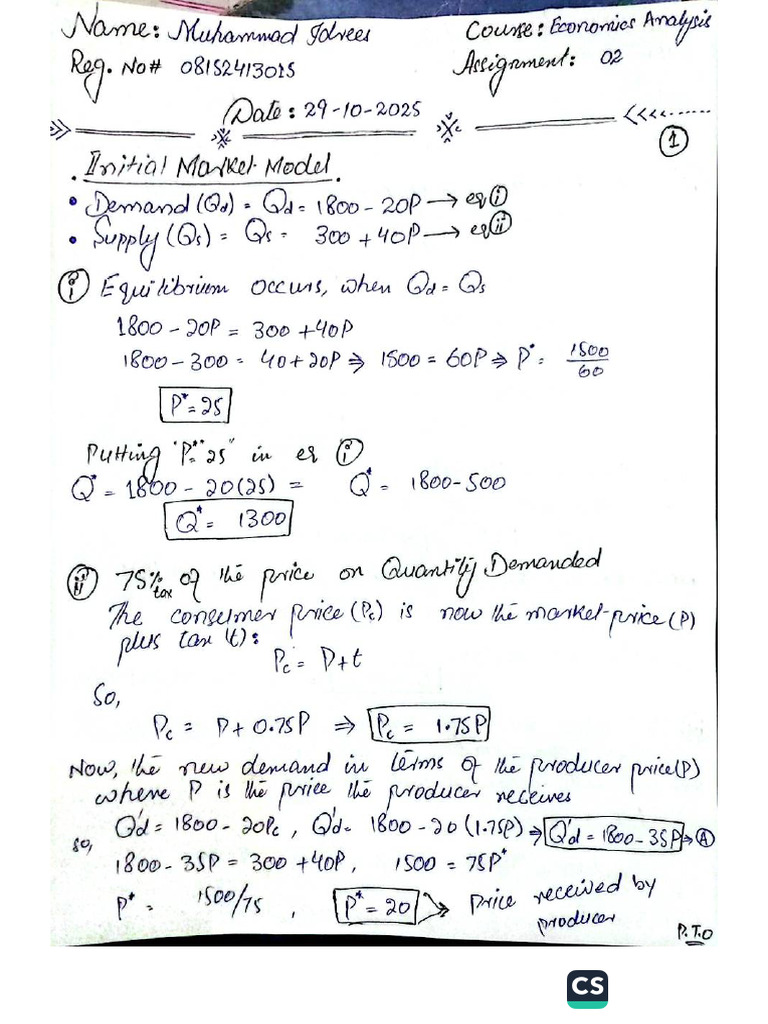 Name: Muhammad Idrees
Course: Economics Analysis
Reg. No# 08152413015
Assignment: 02
Date: 29-10-2025
1
. Initial Market Model.
• Demand (Qd) = Qd = 1800 - 20P → eq (i)
• Supply (Qs) = Qs = 300 + 40P → eq (ii)
(i) Equilibrium occurs, when Qd = Qs
1800 - 20P = 300 + 40P
1800 - 300 = 40 + 20P ⇒ 1500 = 60P ⇒ P* = 1500/60
P* = 25
Putting "P* = 25" in eq (i)
Q* = 1800 - 20(25) = Q* = 1800 - 500
Q* = 1300
(ii) 75% tax of the price on Quantity Demanded
The consumer price (Pc) is now the market price (P)
plus tax (t):
Pc = P + t
So,
Pc = P + 0.75P ⇒ Pc = 1.75P
Now, the new demand in terms of the producer price (P)
where P is the price the producer receives
so, Q'd = 1800 - 20Pc, Q'd = 1800 - 20(1.75P) → Q'd = 1800 - 35P → (A)
1800 - 35P = 300 + 40P, 1500 = 75P*
P* = 1500/75, P* = 20 → Price received by
producer
P.T.O
CS